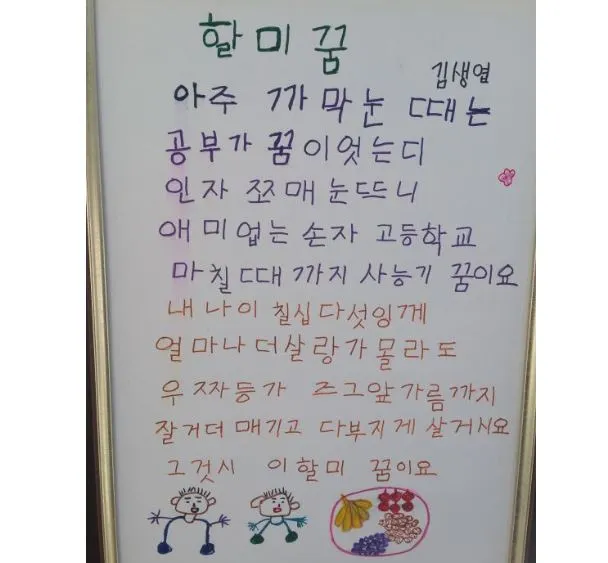 할미꿈
김생엽
아주 까막눈 때는
공부가 꿈이엇는디
인자 쪼매 눈뜨니
애미업는 손자 고등학교
마칠때까지 사능기 꿈이요
내나이 칠십다섯잉께
얼마나 더살랑가 몰라도
우짜등가 즈그앞가름까지
잘거더 매기고 다부지게 살거시요
그것시 이할미 꿈이요